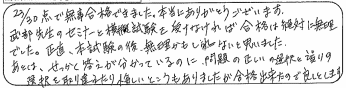 23/30点で無事合格できました。本当にありがとうございます。
武部先生のセミナーと模擬試験を受けなければ合格は絶対に無理
でした。正直、本試験の後、無理かもしれないと思いました。
あとは、せっかく答えが分かっているのに、問題の正しい選択と誤りの
選択を取り違えたり悔しいところもありましたが合格出来たので良しとします